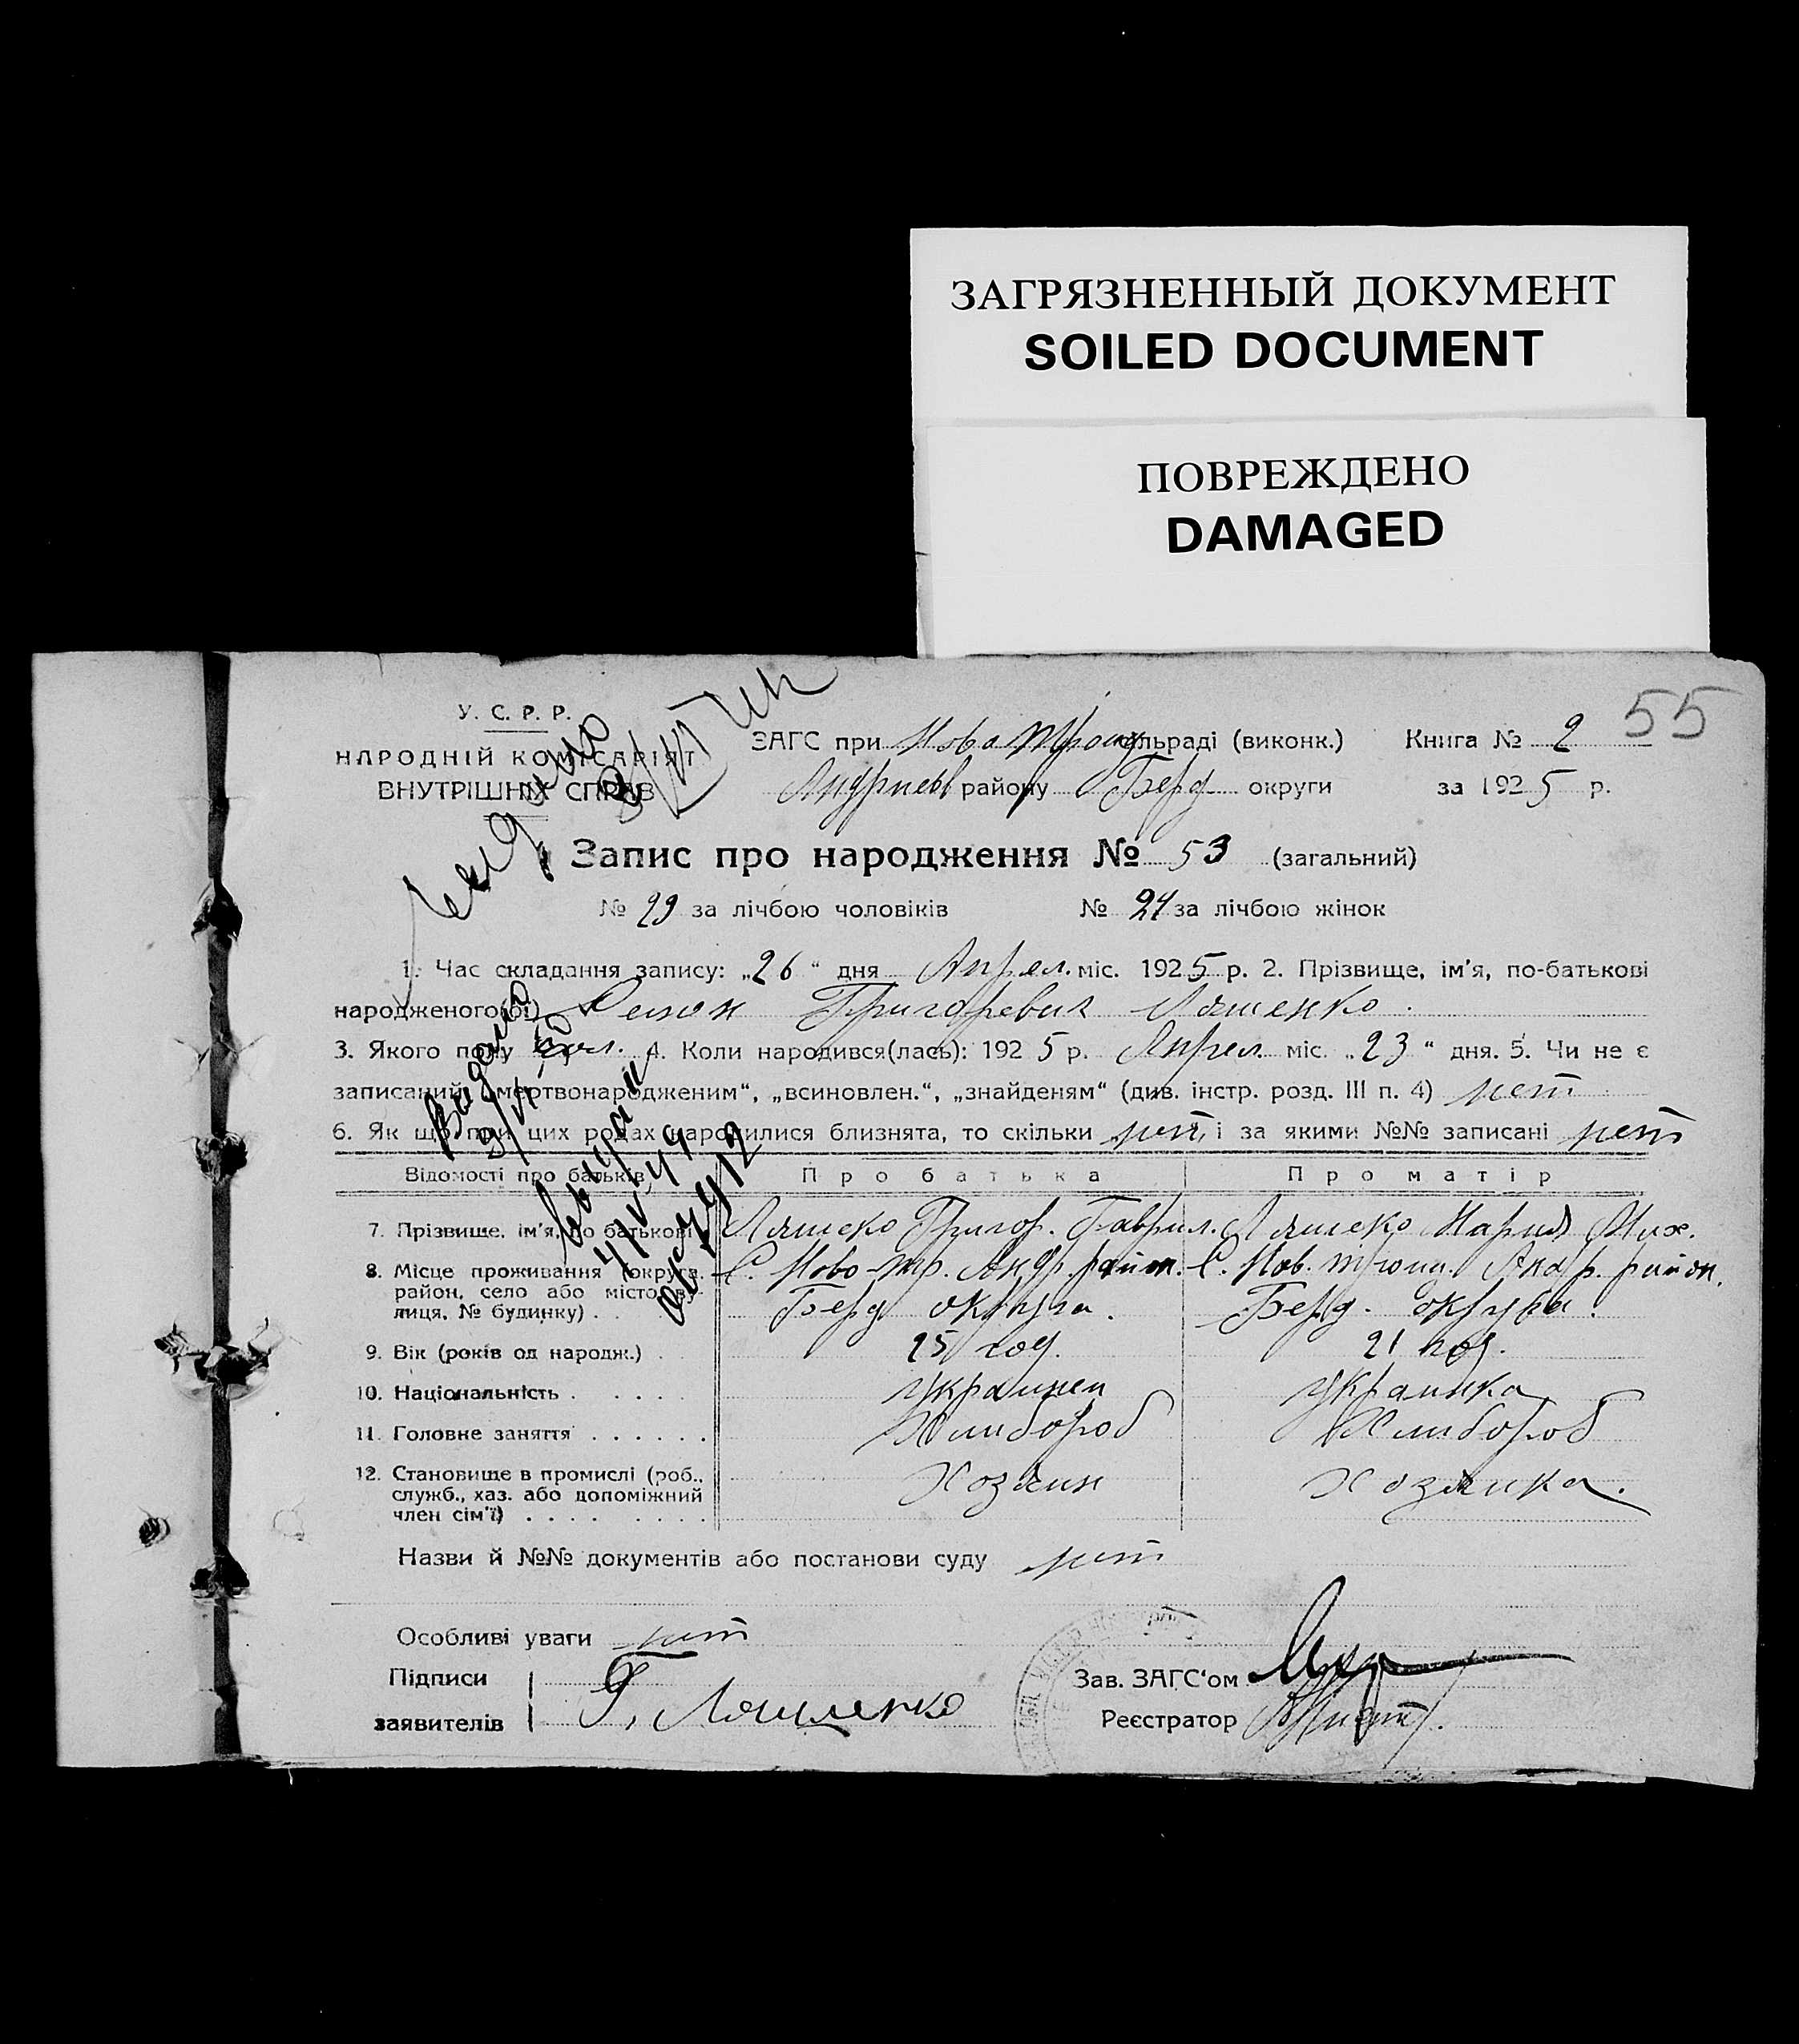 ЗАГРЯЗНЕННЫЙ ДОКУМЕНТ
SOILED DOCUMENT
ПОВРЕЖДЕНО
DAMAGED
55
У. С. Р. Р.
НАРОДНІЙ КОМІСАРІЯТ
ВНУТРІШНІХ СПРАВ
ЗАГС при Ново Троиц сільраді (виконк.) Книга № 2
Андриев району Берд округи за 1925 р.
Запис про народження № 53 (загальний)
№ 29 за лічбою чоловіків № 24 за лічбою жінок
1. Час складання запису: „26“ дня Апрел. міс. 1925 р. 2. Прізвище, ім'я, по-батькові
народженого(ої) Семон Григоревич Ляшенко.
3. Якого полу 4. Коли народився(лась): 1925 р. Апрел міс. „23“ дня. 5. Чи не є
записаний „мертвонародженим“, „всиновлен.“, „знайденям“ (див. інстр. розд. III п. 4) нет
6. Як що при цих родах народилися близнята, то скільки нет, і за якими №№ записані нет
Відомості про батьків Про батька Про матір
7. Прізвище, ім'я, по батькові Ляшеко Григор. Гаврил. Ляшеко Мария Мих.
8. Місце проживання (округа, район, село або місто, вулиця, № будинку) . С. Ново-тр. Андр. район. С. Нов. троиц. Андр. район.
Берд округа. Берд. округы.
9. Вік (років од народж.) . 25 год. 21 год.
10. Національність . . . . . украинец украинка
11. Головне заняття . . . . . . Хлибороб Хлибороб
12. Становище в промислі (роб., служб., хаз. або допоміжний член сім'ї) . . . . . . . . Хозяин Хозяика.
Назви й №№ документів або постанови суду нет
Особливі уваги нет
Підписи
заявителів Г. Ляшенко
Зав. ЗАГС'ом
Реєстратор